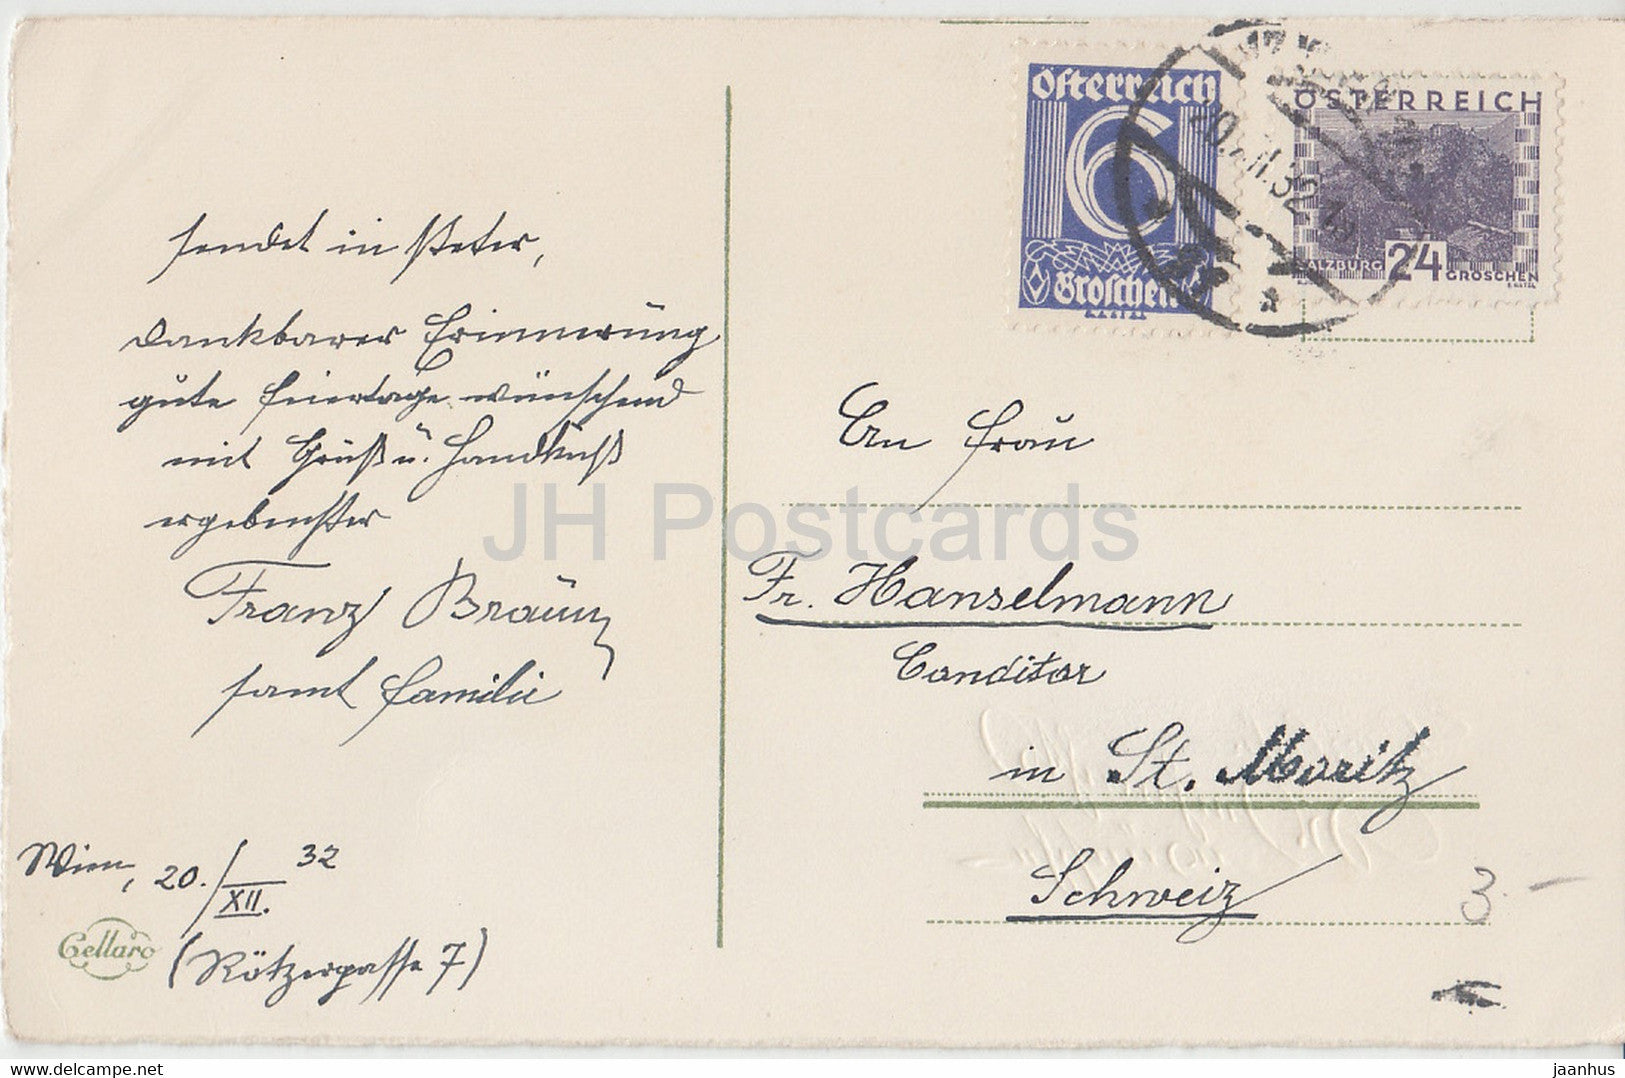 sendet in steter,
dankbarer Erinnerung
gute Feiertage wünschend
mit Gruß u. Handkuß
ergebenster
Franz Braun
samt Familie
Wien, 20./XII. 32
(Rötzergasse 7)
Cellaro
Österreich
6
Groschen
ÖSTERREICH
SALZBURG 24 GROSCHEN
20.XII.32
An Frau
Fr. Hanselmann
Conditor
in St. Moritz
Schweiz
3.-
JH Postcards
hipstamp.com/store/jaanhus
jaanhus